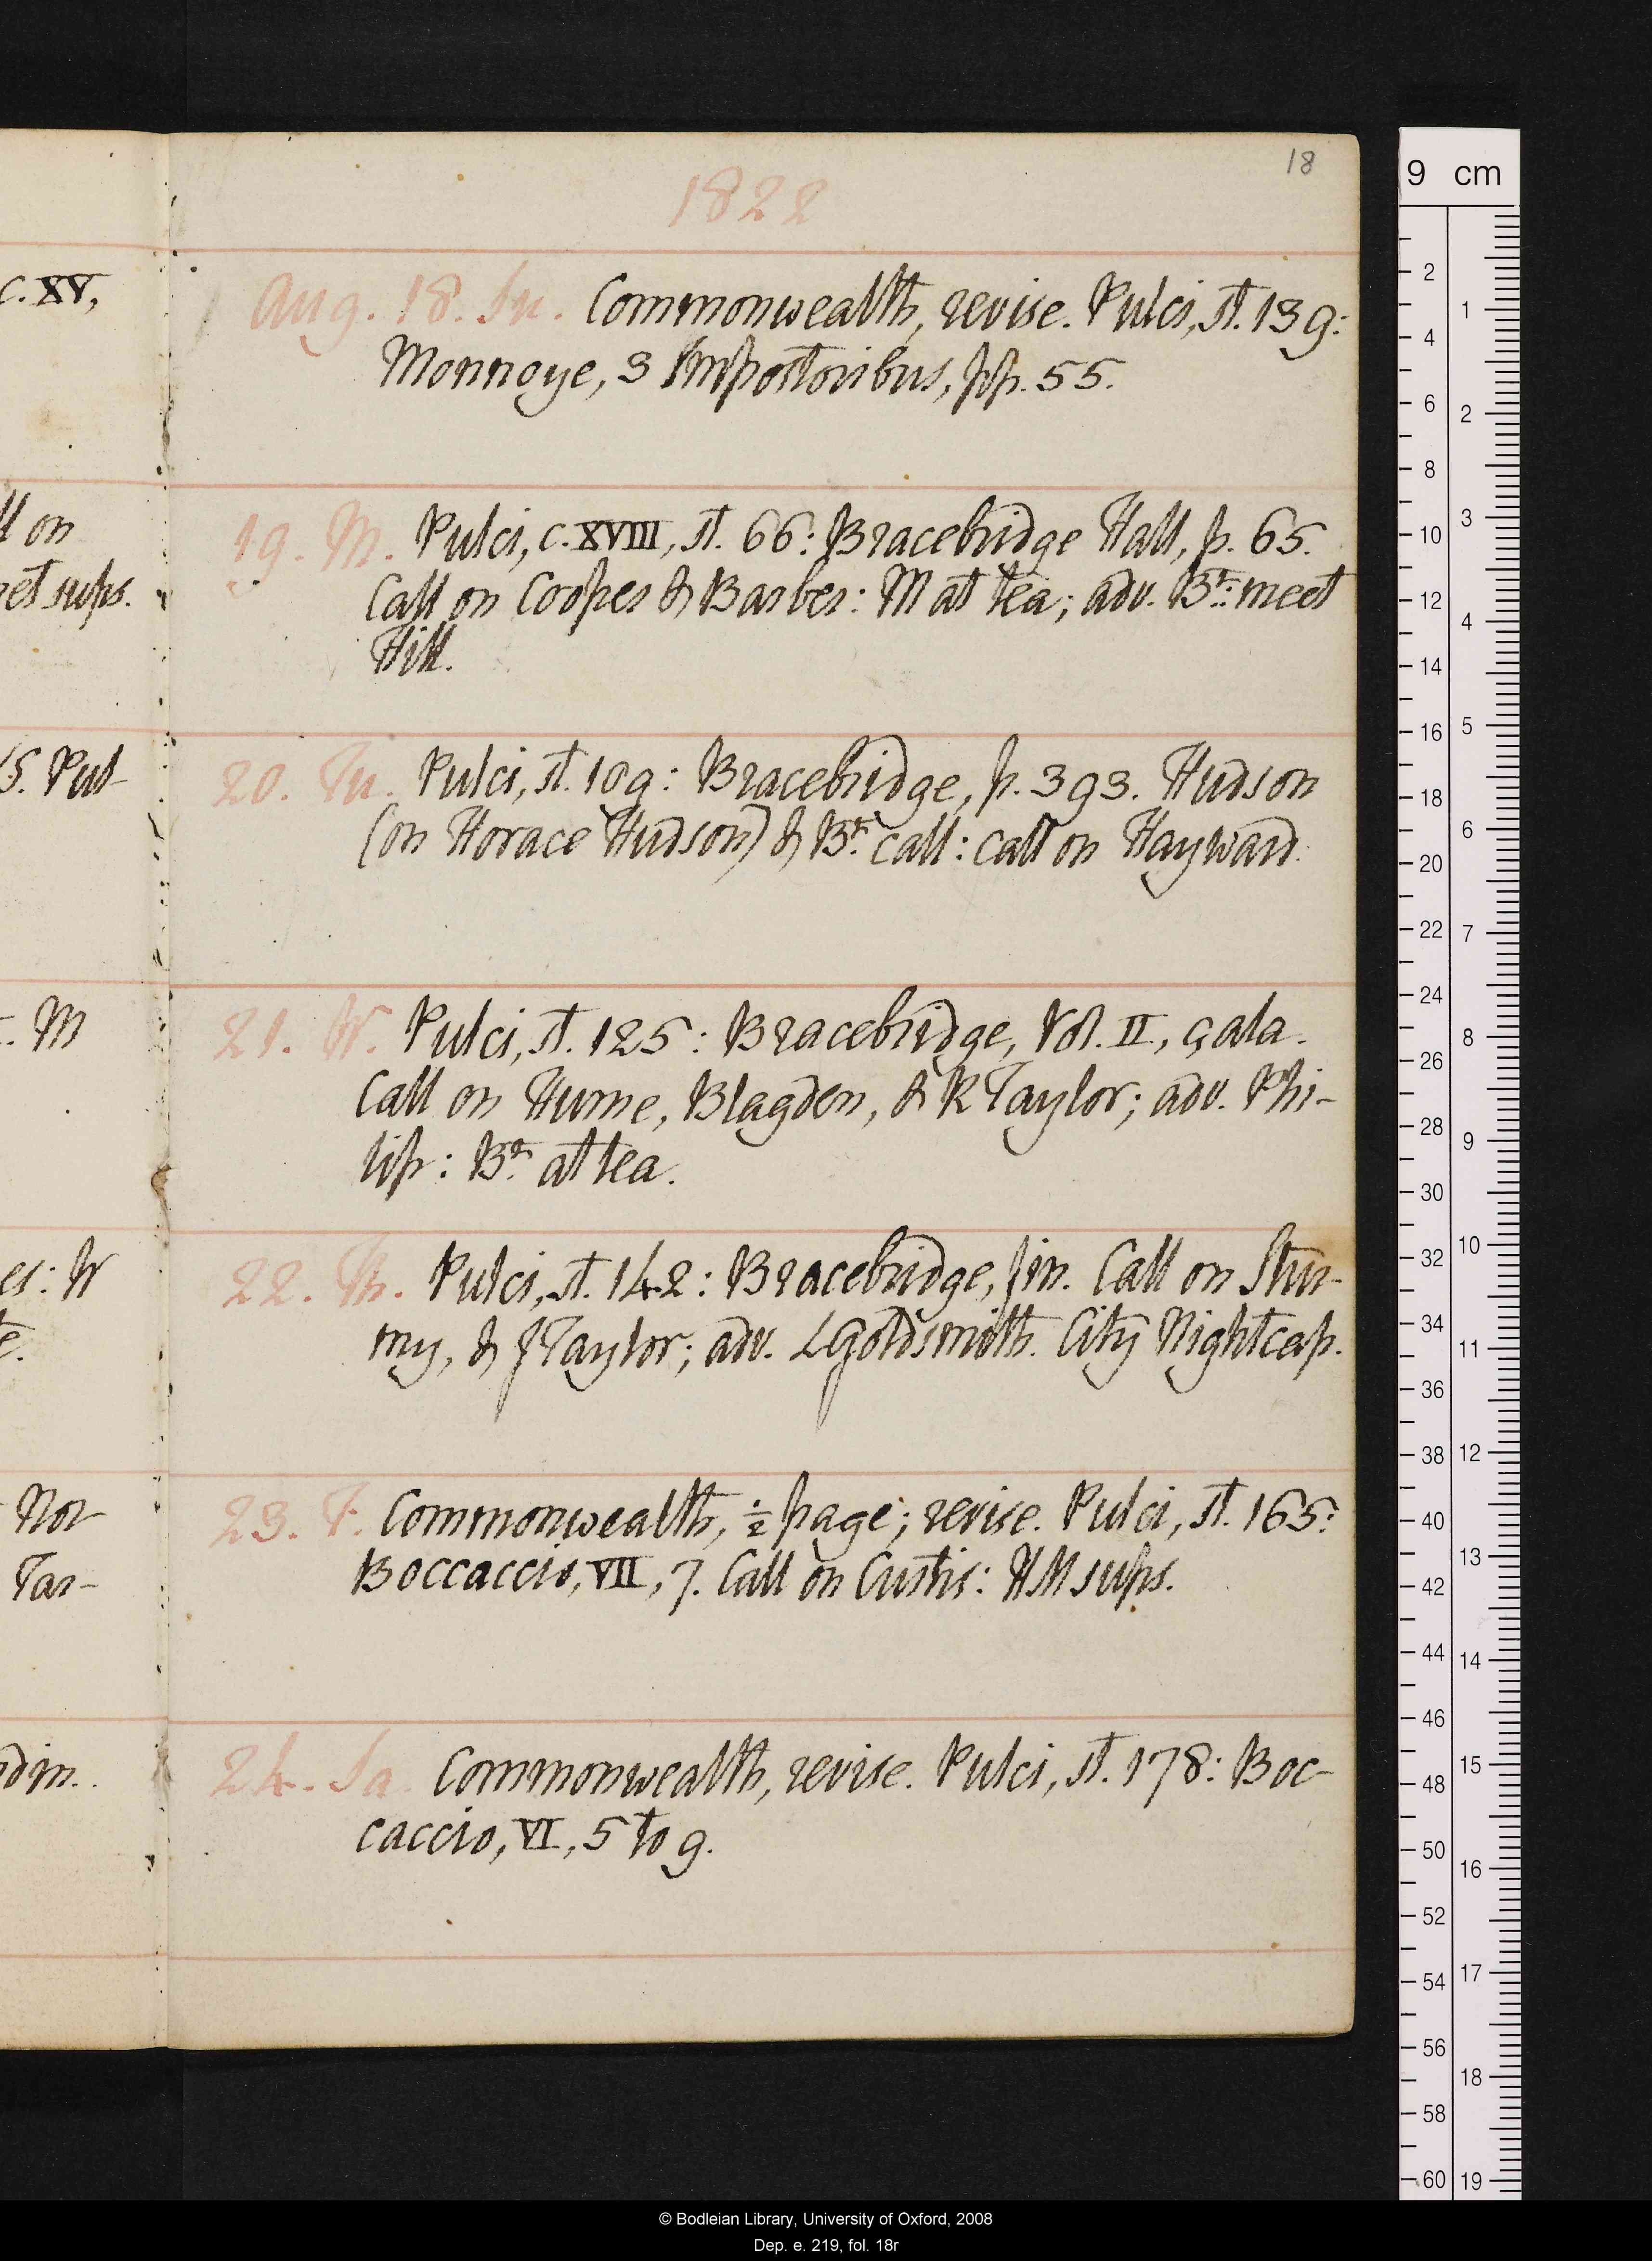 18
1822
c. XV,
Aug. 18. Su. Commonwealth, revise. Pulci, st. 139:
Monnoye, 3 Impostoribus, pp. 55.
ll on
et sups.
19. M. Pulci, c. XVIII, st. 66: Bracebridge Hall, p. 65.
Call on Cooper & Barber: M at tea; adv. Bn: meet
Hill.
5. Pul-
20. Tu. Pulci, st. 109: Bracebridge, p. 393. Hudson
(on Horace Hudson) & Bn. call: call on Hayward.
M
21. W. Pulci, st. 125: Bracebridge, Vol. II, çala.
Call on Hume, Blagden, & R Taylor; adv. Phi-
lip: Bn. at tea.
es: W
22. Th. Pulci, st. 142: Bracebridge, fin. Call on Stur-
my, & J Taylor; adv. L Goldsmith. City Nightcap.
Nor
Tar-
23. F. Commonwealth, ½ page; revise. Pulci, st. 165:
Boccaccio, VII, 7. Call on Curtis: HM sups.
24. Sa. Commonwealth, revise. Pulci, st. 178: Boc-
caccio, VI, 5 to 9.
9 cm
2 4 6 8 10 12 14 16 18 20 22 24 26 28 30 32 34 36 38 40 42 44 46 48 50 52 54 56 58 60
1 2 3 4 5 6 7 8 9 10 11 12 13 14 15 16 17 18 19
© Bodleian Library, University of Oxford, 2008
Dep. e. 219, fol. 18r